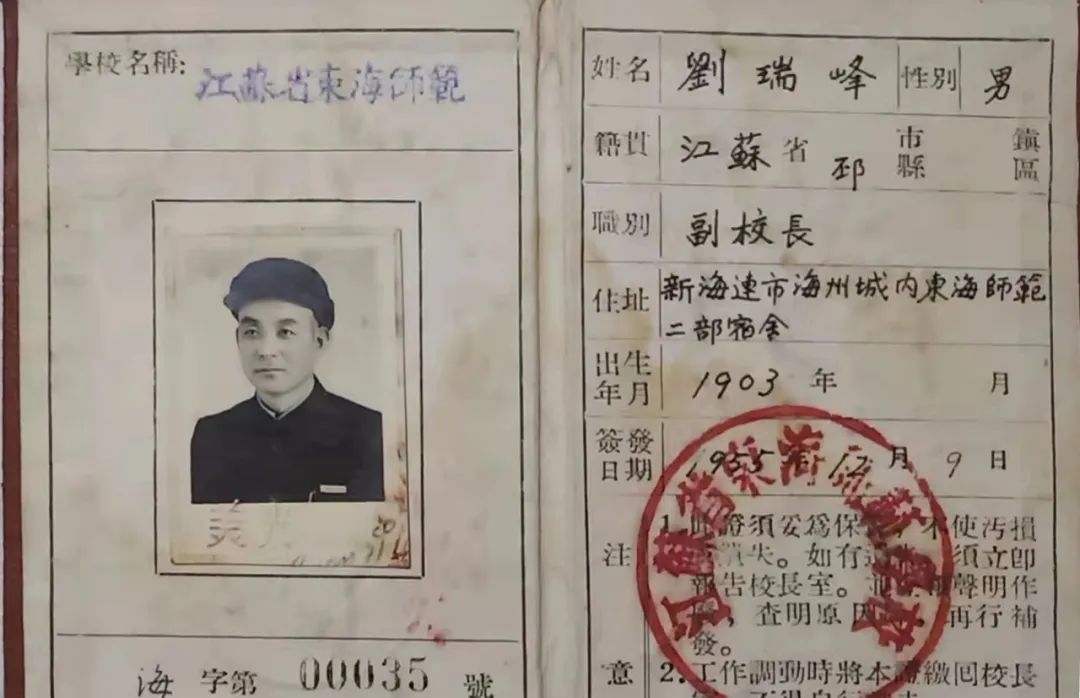 學校名稱:
江蘇省東海師範
海 字第 00035 號
姓名 劉瑞峰 性別 男
籍貫 江蘇省 邳 市縣 鎮區
職別 副校長
住址 新海連市海州城内東海師範
二部宿舍
出生年月 1903 年 月
簽發日期 1955 年 12 月 9 日
注意
1. 此證須妥爲保 不使汚損
失。如有 須立卽
報告校長室。並 聲明作
,查明原因 再行補
發。
2. 工作調動時將本證繳囘校長